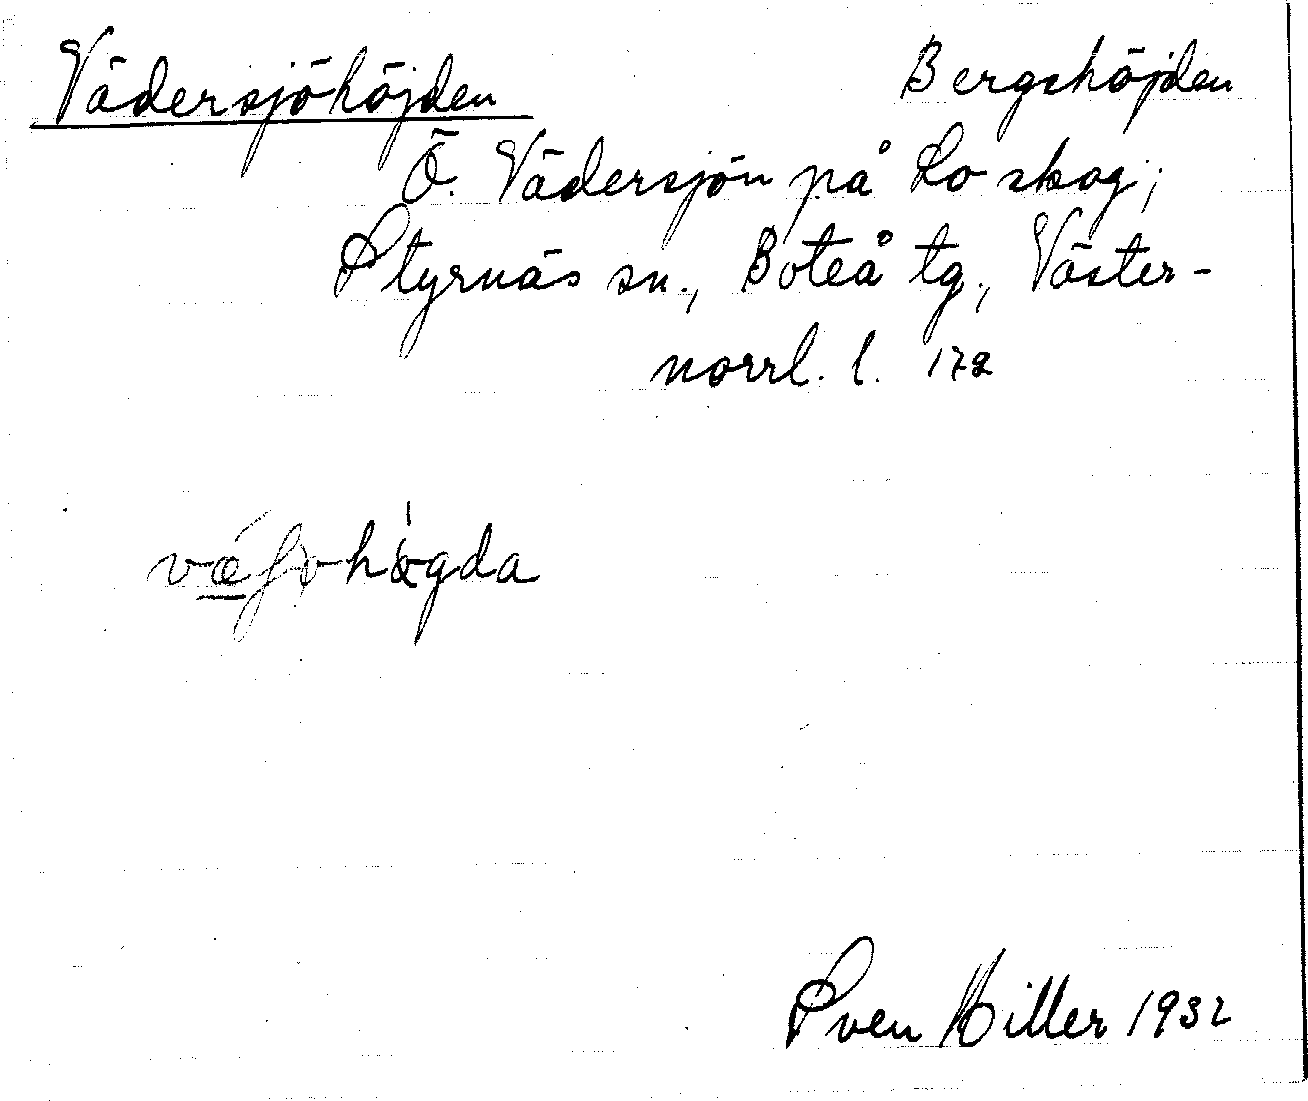 Vädersjöhöjden Bergshöjden
Ö. Vädersjön på Lo skog;
Styrnäs sn., Boteå tg., Väster-
norrl. l. 172
Sven Hiller 1932